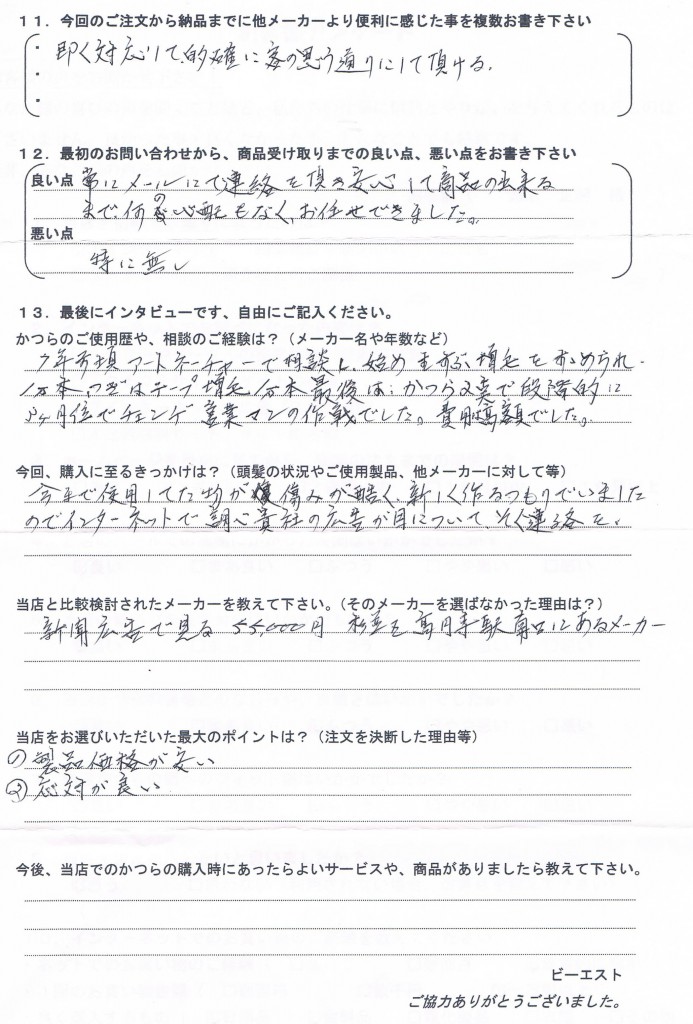 11．今回のご注文から納品までに他メーカーより便利に感じた事を複数お書き下さい
・即く対応して、的確に客の思う通りにして頂ける。
・
・
12．最初のお問い合わせから、商品受け取りまでの良い点、悪い点をお書き下さい
良い点 常にメールにて連絡を頂き安心して商品の出来る
まで何の心配もなく、お任せできました。
悪い点
特に無し
13．最後にインタビューです、自由にご記入ください。
かつらのご使用歴や、相談のご経験は？（メーカー名や年数など）
7年前頃アートネーチャーで相談し、始めまず、増毛をすゝめられ、
つぎはテープ増毛 最後は、かつら で段階的に
ヶ月位でチェンゲ営業マンの作戦でした。費用高額でした。
今回、購入に至るきっかけは？（頭髪の状況やご使用製品、他メーカーに対して等）
今まで使用してた物が傷みが酷く、新しく作るつもりでいました
のでインターネットで調べ貴社の広告が目について、すぐ連絡を。
当店と比較検討されたメーカーを教えて下さい。（そのメーカーを選ばなかった理由は？）
新聞広告で見る 55,000円 にあるメーカー
当店をお選びいただいた最大のポイントは？（注文を決断した理由等）
① 製品価格が安い
② 応対が良い
今後、当店でのかつらの購入時にあったらよいサービスや、商品がありましたら教えて下さい。
ビーエスト
ご協力ありがとうございました。